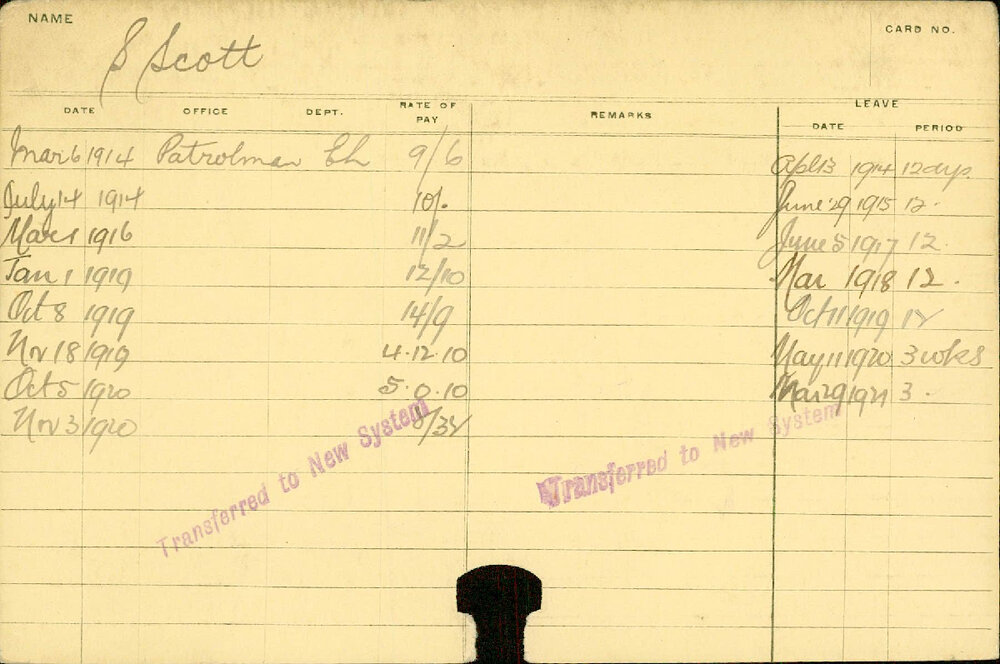 NAME
CARD NO.
S Scott
DATE OFFICE DEPT. RATE OF PAY REMARKS LEAVE
DATE PERIOD
Mar 6 1914 Patrolman Ch 9/6 Apl 13 1914 12 dys.
July 14 1914 10/. June 29 1915 12.
Mar 1 1916 11/2 June 5 1917 12.
Jan 1 1919 12/10 Mar 1918 12.
Oct 8 1919 14/9 Oct 11 1919 12
Nov 18 1919 4.12.10 May 11 1920 3 wks
Oct 5 1920 5.0.10 Mar 29 1921 3.
Nov 3 1920
Transferred to New System
Transferred to New System